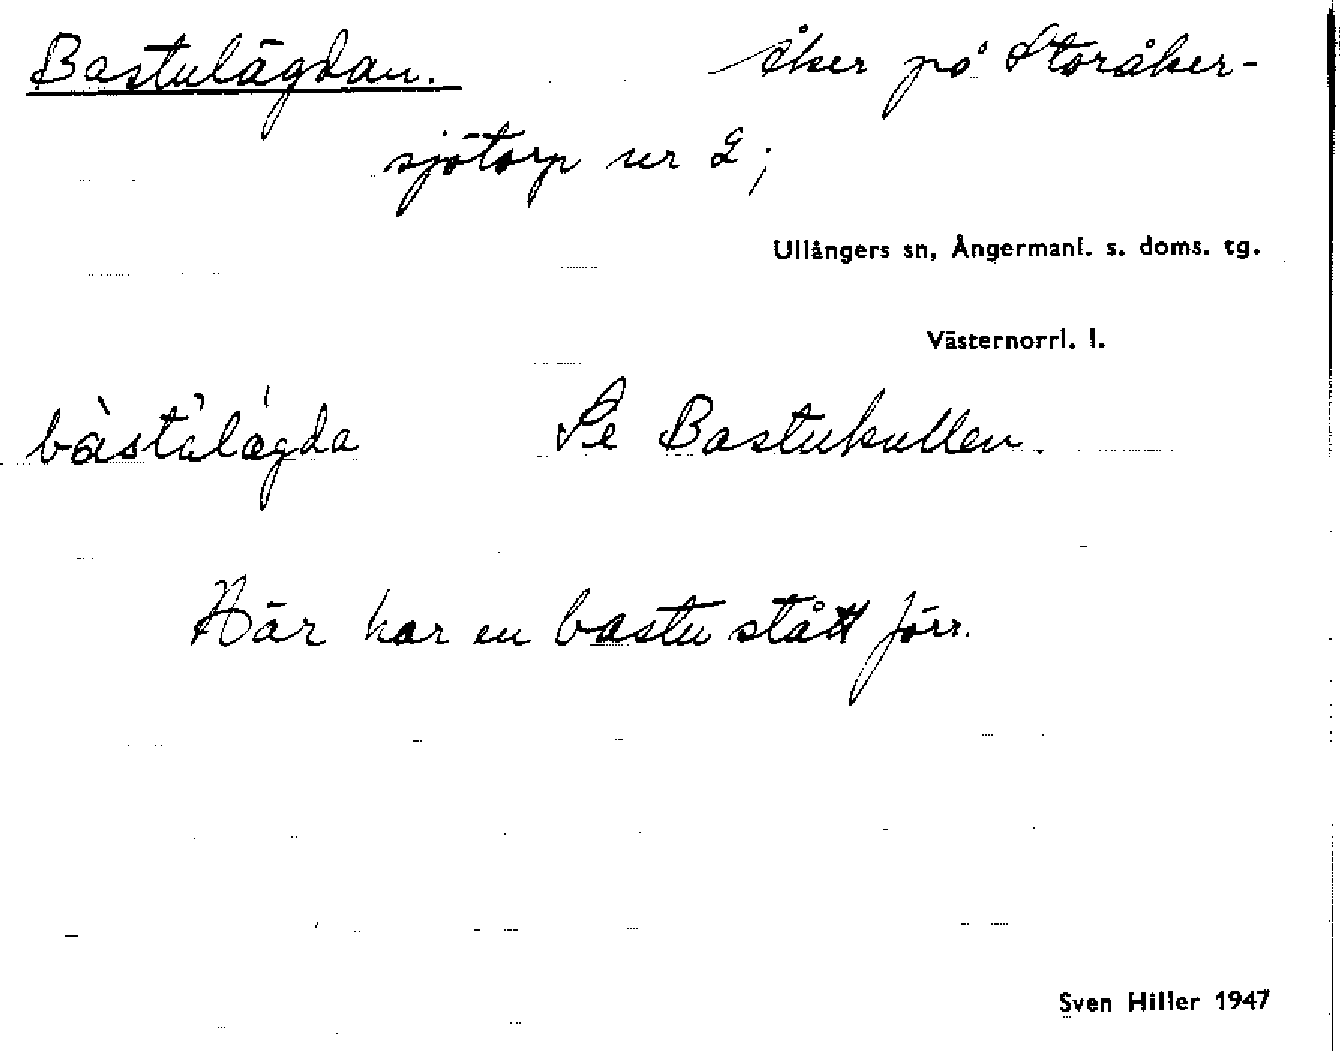 Bastulägdan. åker på Storåker-
sjötorp nr 2;
Ullångers sn, Ångermanl. s. doms. tg.
Västernorrl. l.
bàstulǽgda Se Bastukullen.
Här har en bastu stått förr.
Sven Hiller 1947